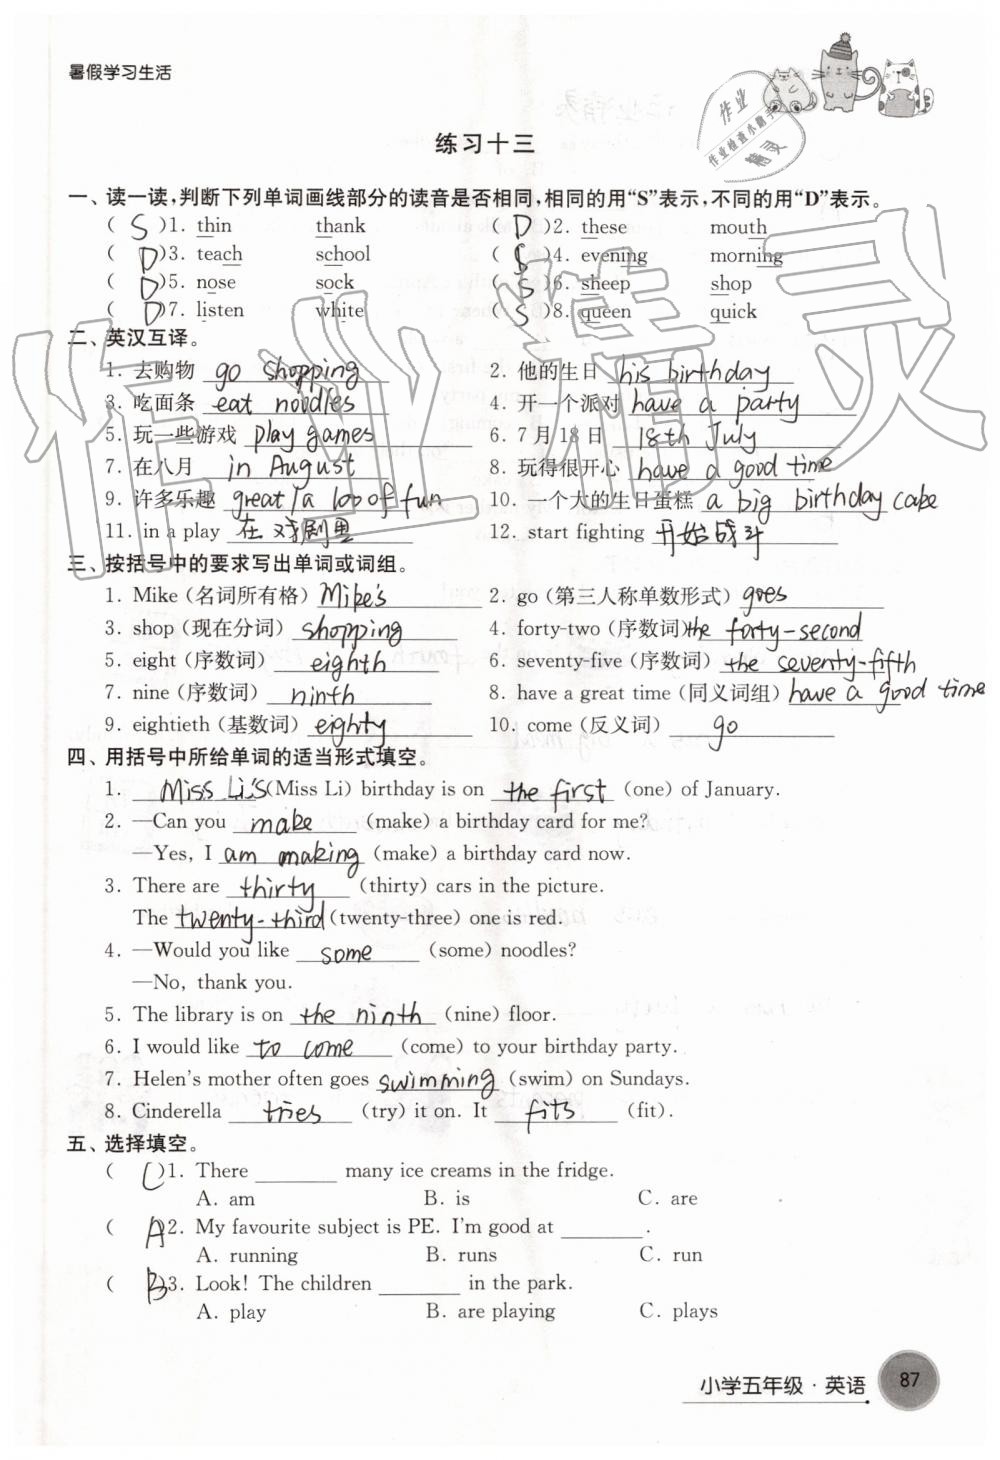 暑假学习生活
作业
作业检查小助手
精灵
练习十三
一、读一读,判断下列单词画线部分的读音是否相同,相同的用“S”表示,不同的用“D”表示。
( S )1. thin thank ( D )2. these mouth
( D )3. teach school ( S )4. evening morning
( D )5. nose sock ( S )6. sheep shop
( D )7. listen white ( S )8. queen quick
二、英汉互译。
1. 去购物 go shopping 2. 他的生日 his birthday
3. 吃面条 eat noodles 4. 开一个派对 have a party
5. 玩一些游戏 play games 6. 7月18日 18th July
7. 在八月 in August 8. 玩得很开心 have a good time
9. 许多乐趣 great/a loo of fun 10. 一个大的生日蛋糕 a big birthday cake
11. in a play 在戏剧里 12. start fighting 开始战斗
三、按括号中的要求写出单词或词组。
1. Mike (名词所有格) Mike's 2. go (第三人称单数形式) goes
3. shop (现在分词) shopping 4. forty-two (序数词) the forty-second
5. eight (序数词) eighth 6. seventy-five (序数词) the seventy-fifth
7. nine (序数词) ninth 8. have a great time (同义词组) have a good time
9. eightieth (基数词) eighty 10. come (反义词) go
四、用括号中所给单词的适当形式填空。
1. Miss Li's (Miss Li) birthday is on the first (one) of January.
2. —Can you make (make) a birthday card for me?
—Yes, I am making (make) a birthday card now.
3. There are thirty (thirty) cars in the picture.
The twenty-third (twenty-three) one is red.
4. —Would you like some (some) noodles?
—No, thank you.
5. The library is on the ninth (nine) floor.
6. I would like to come (come) to your birthday party.
7. Helen's mother often goes swimming (swim) on Sundays.
8. Cinderella tries (try) it on. It fits (fit).
五、选择填空。
( C )1. There ________ many ice creams in the fridge.
A. am B. is C. are
( A )2. My favourite subject is PE. I'm good at ________ .
A. running B. runs C. run
( B )3. Look! The children ________ in the park.
A. play B. are playing C. plays
小学五年级·英语 87
作业精灵